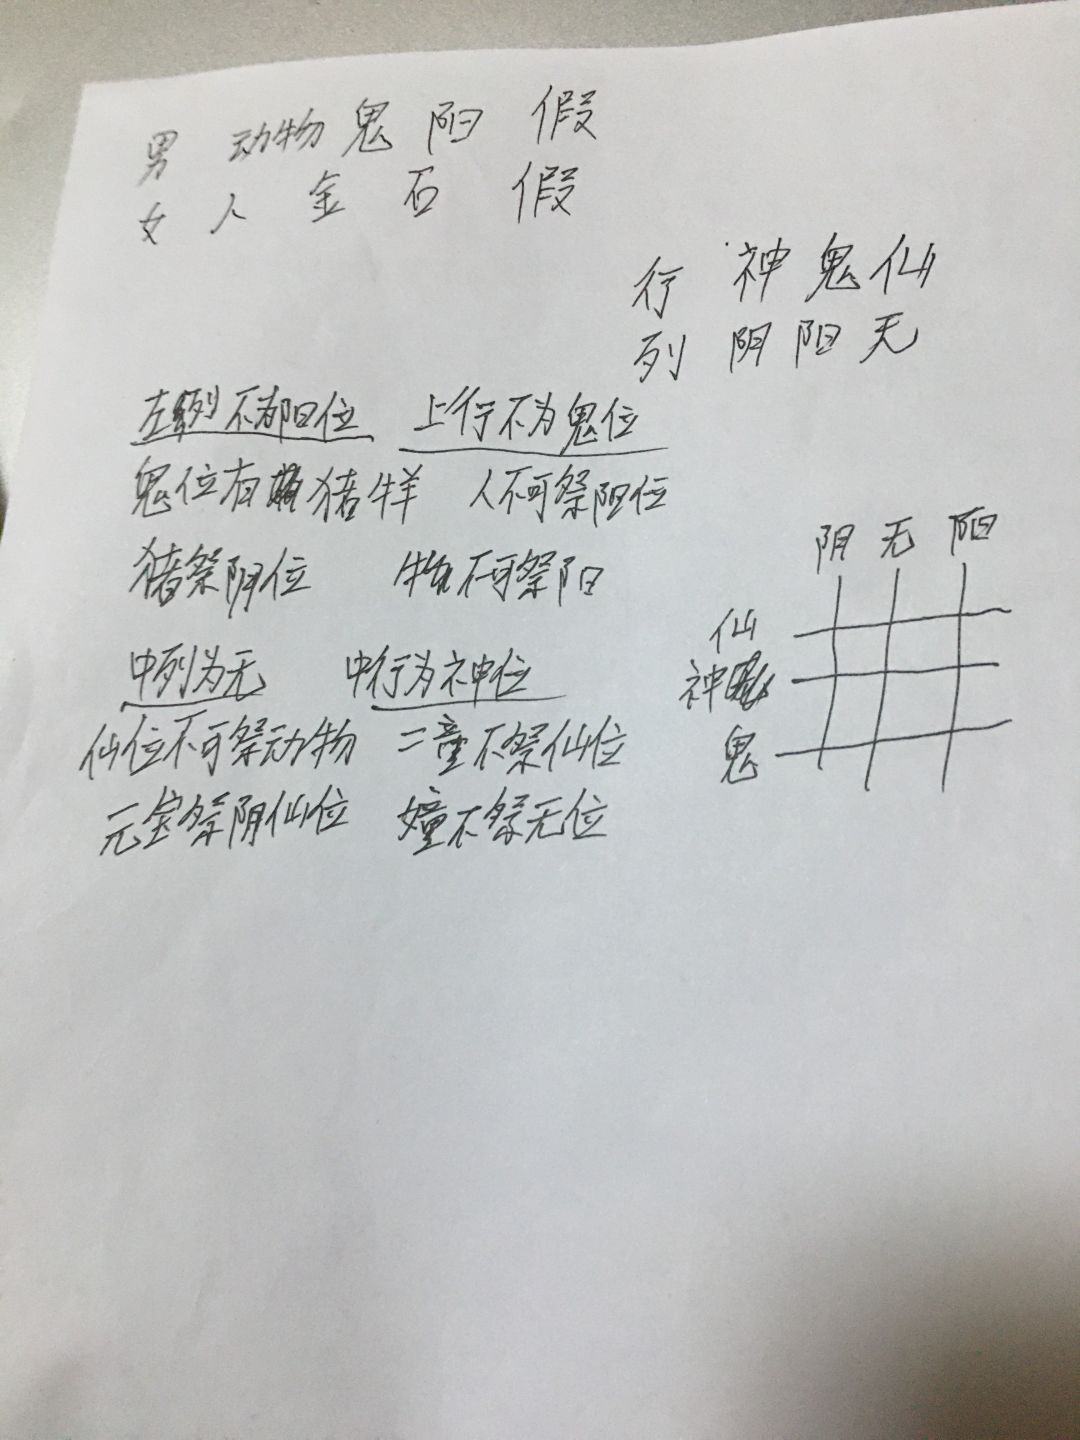 男 动物 鬼 阳 假
女 人 金 石 假
行 神鬼仙
列 阴阳无
左列不为阳位 上行不为鬼位
鬼位有猪羊 人不可祭阳位
猪祭阴位 物不可祭阳
中列为无 中行为神位
仙位不可祭动物 二童不祭仙位
元宝祭阴仙位 童不祭无位
阴 无 阳
仙
神
鬼